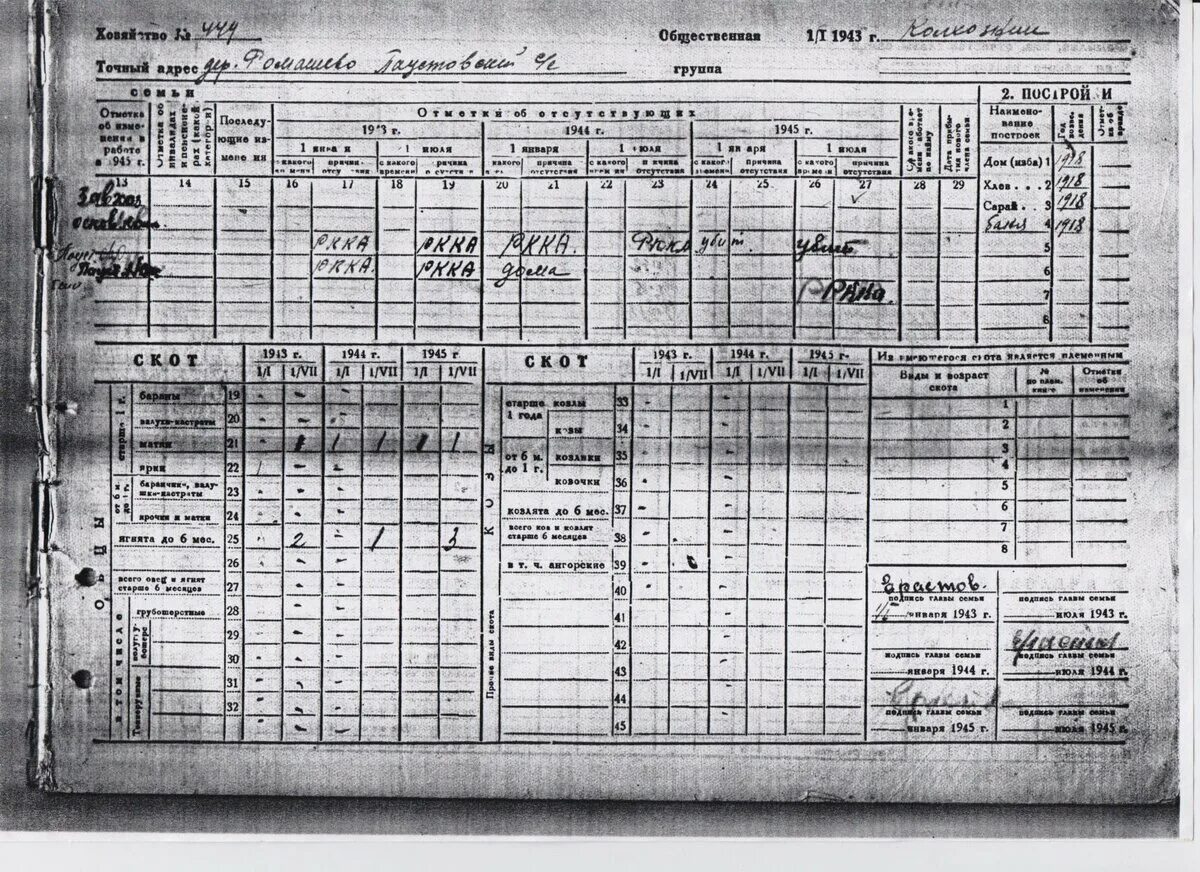 Хозяйство № 444 Общественная 1/I 1943 г. Колхозник
Точный адрес дер. Ромашево Паустовский с/с группа
СЕМЬИ
2. ПОСТРОЙКИ
Отметка об изменении в работе в 1945 г.
Отметка об инвалидах и пенсионерах (какой категории)
Последующие изменения
Отметки об отсутствующих
1943 г. 1944 г. 1945 г.
1 января 1 июля 1 января 1 июля 1 января 1 июля
с какого времени причина отсутствия с какого времени причина отсутствия с какого времени причина отсутствия с какого времени причина отсутствия с какого времени причина отсутствия с какого времени причина отсутствия
С какого времени работает по найму
Дата прибытия нового члена семьи
Наименование построек
Год возведения
13 14 15 16 17 18 19 20 21 22 23 24 25 26 27 28 29
Завхоз
РККА РККА РККА. РККА убит. убит
РККА. РККА дома
РККА.
Дом (изба) 1 1918
Хлев . . . 2 1918
Сарай . . 3 1918
баня 4 1918
5
6
7
8
СКОТ 1943 г. 1944 г. 1945 г.
1/I 1/VII 1/I 1/VII 1/I 1/VII
ОВЦЫ
старше 1 г.
бараны 19
валухи-кастраты 20
матки 21 1 1 1 1 1
ярки 22
от 6 м. до 1 г.
баранчики, валушки-кастраты 23
ярочки и матки 24
ягнята до 6 мес. 25 2 - 1 3
26
всего овец и ягнят старше 6 месяцев 27
в том числе
грубошерстные 28
29
30
31
32
СКОТ 1943 г. 1944 г. 1945 г.
1/I 1/VII 1/I 1/VII 1/I 1/VII
КОЗЫ
старше 1 года козлы 33
козы 34
от 6 м. до 1 г. козлики 35
козочки 36
козлята до 6 мес. 37
всего коз и козлят старше 6 месяцев 38
в т. ч. ангорские 39
40
Прочие виды скота
41
42
43
44
45
Из имеющегося скота является племенным
Виды и возраст скота
№ по плем. книге
Отметки об изменении
1
2
3
4
5
6
7
8
Ерастов.
подпись главы семьи подпись главы семьи
января 1943 г. июля 1943 г.
Ерастов
подпись главы семьи подпись главы семьи
января 1944 г. июля 1944 г.
подпись главы семьи подпись главы семьи
января 1945 г. июля 1945 г.